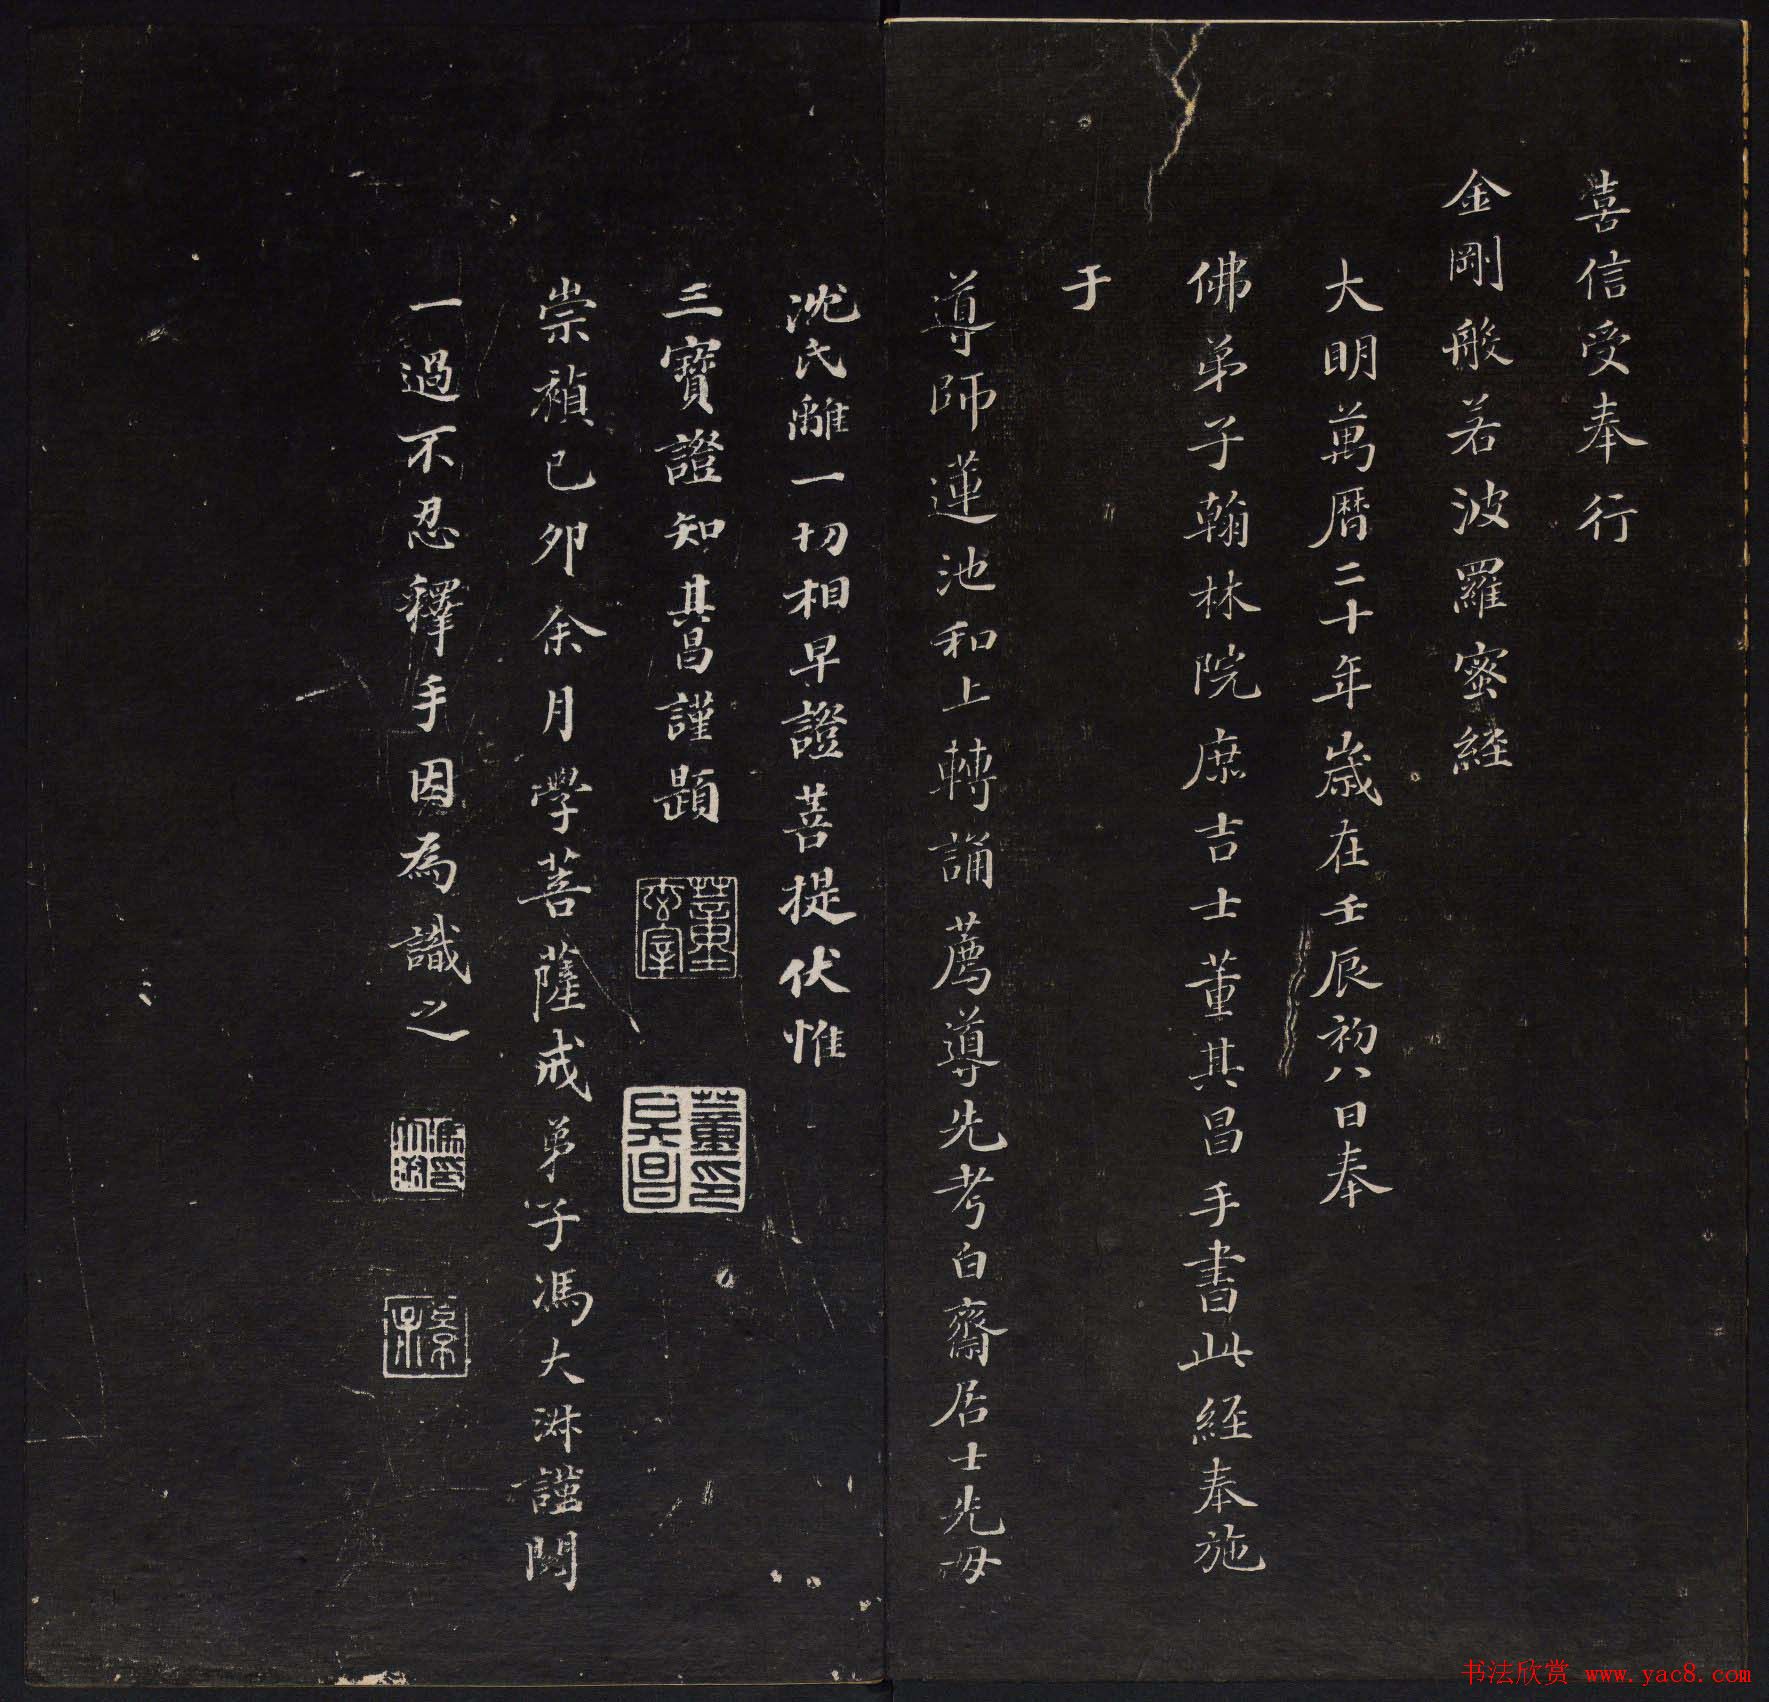 喜信受奉行
金剛般若波羅蜜経
大明萬曆二十年歲在壬辰初八日奉
佛弟子翰林院庶吉士董其昌手書此経奉施
于
導師蓮池和上轉誦薦導先考白齋居士先母
沈氏離一切相早證菩提伏惟
三寶證知其昌謹題
董其昌印
崇禎己卯余月學菩薩戒弟子馮大　謹閱
一過不忍釋手因為識之
书法欣赏 www.yac8.com